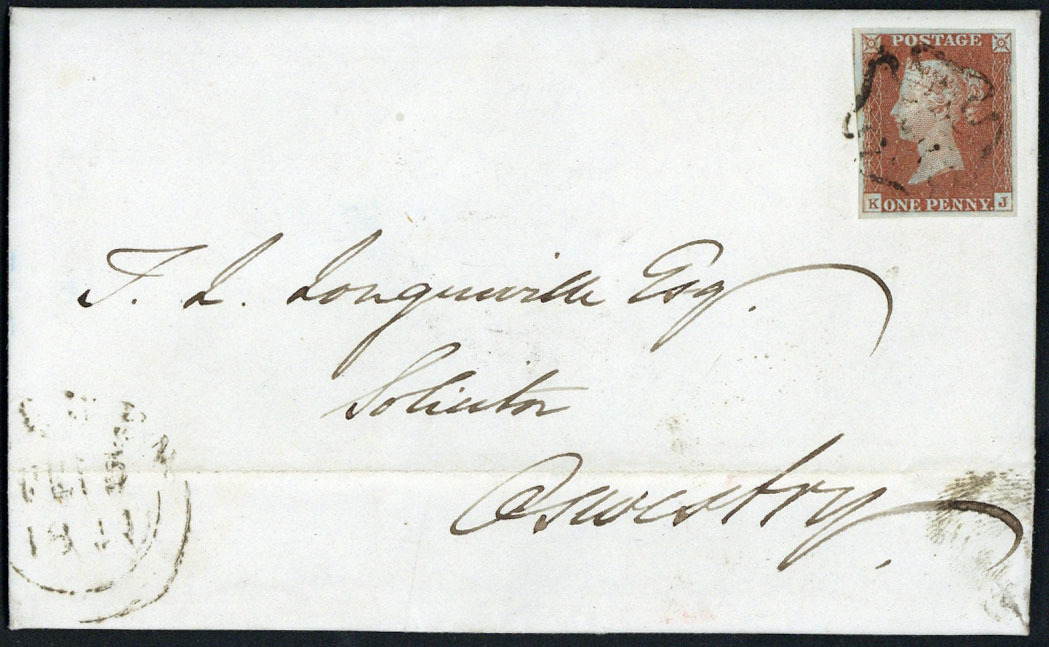 POSTAGE
K ONE PENNY. J
T. L. Longueville Esq.
Solicitor
Oswestry.